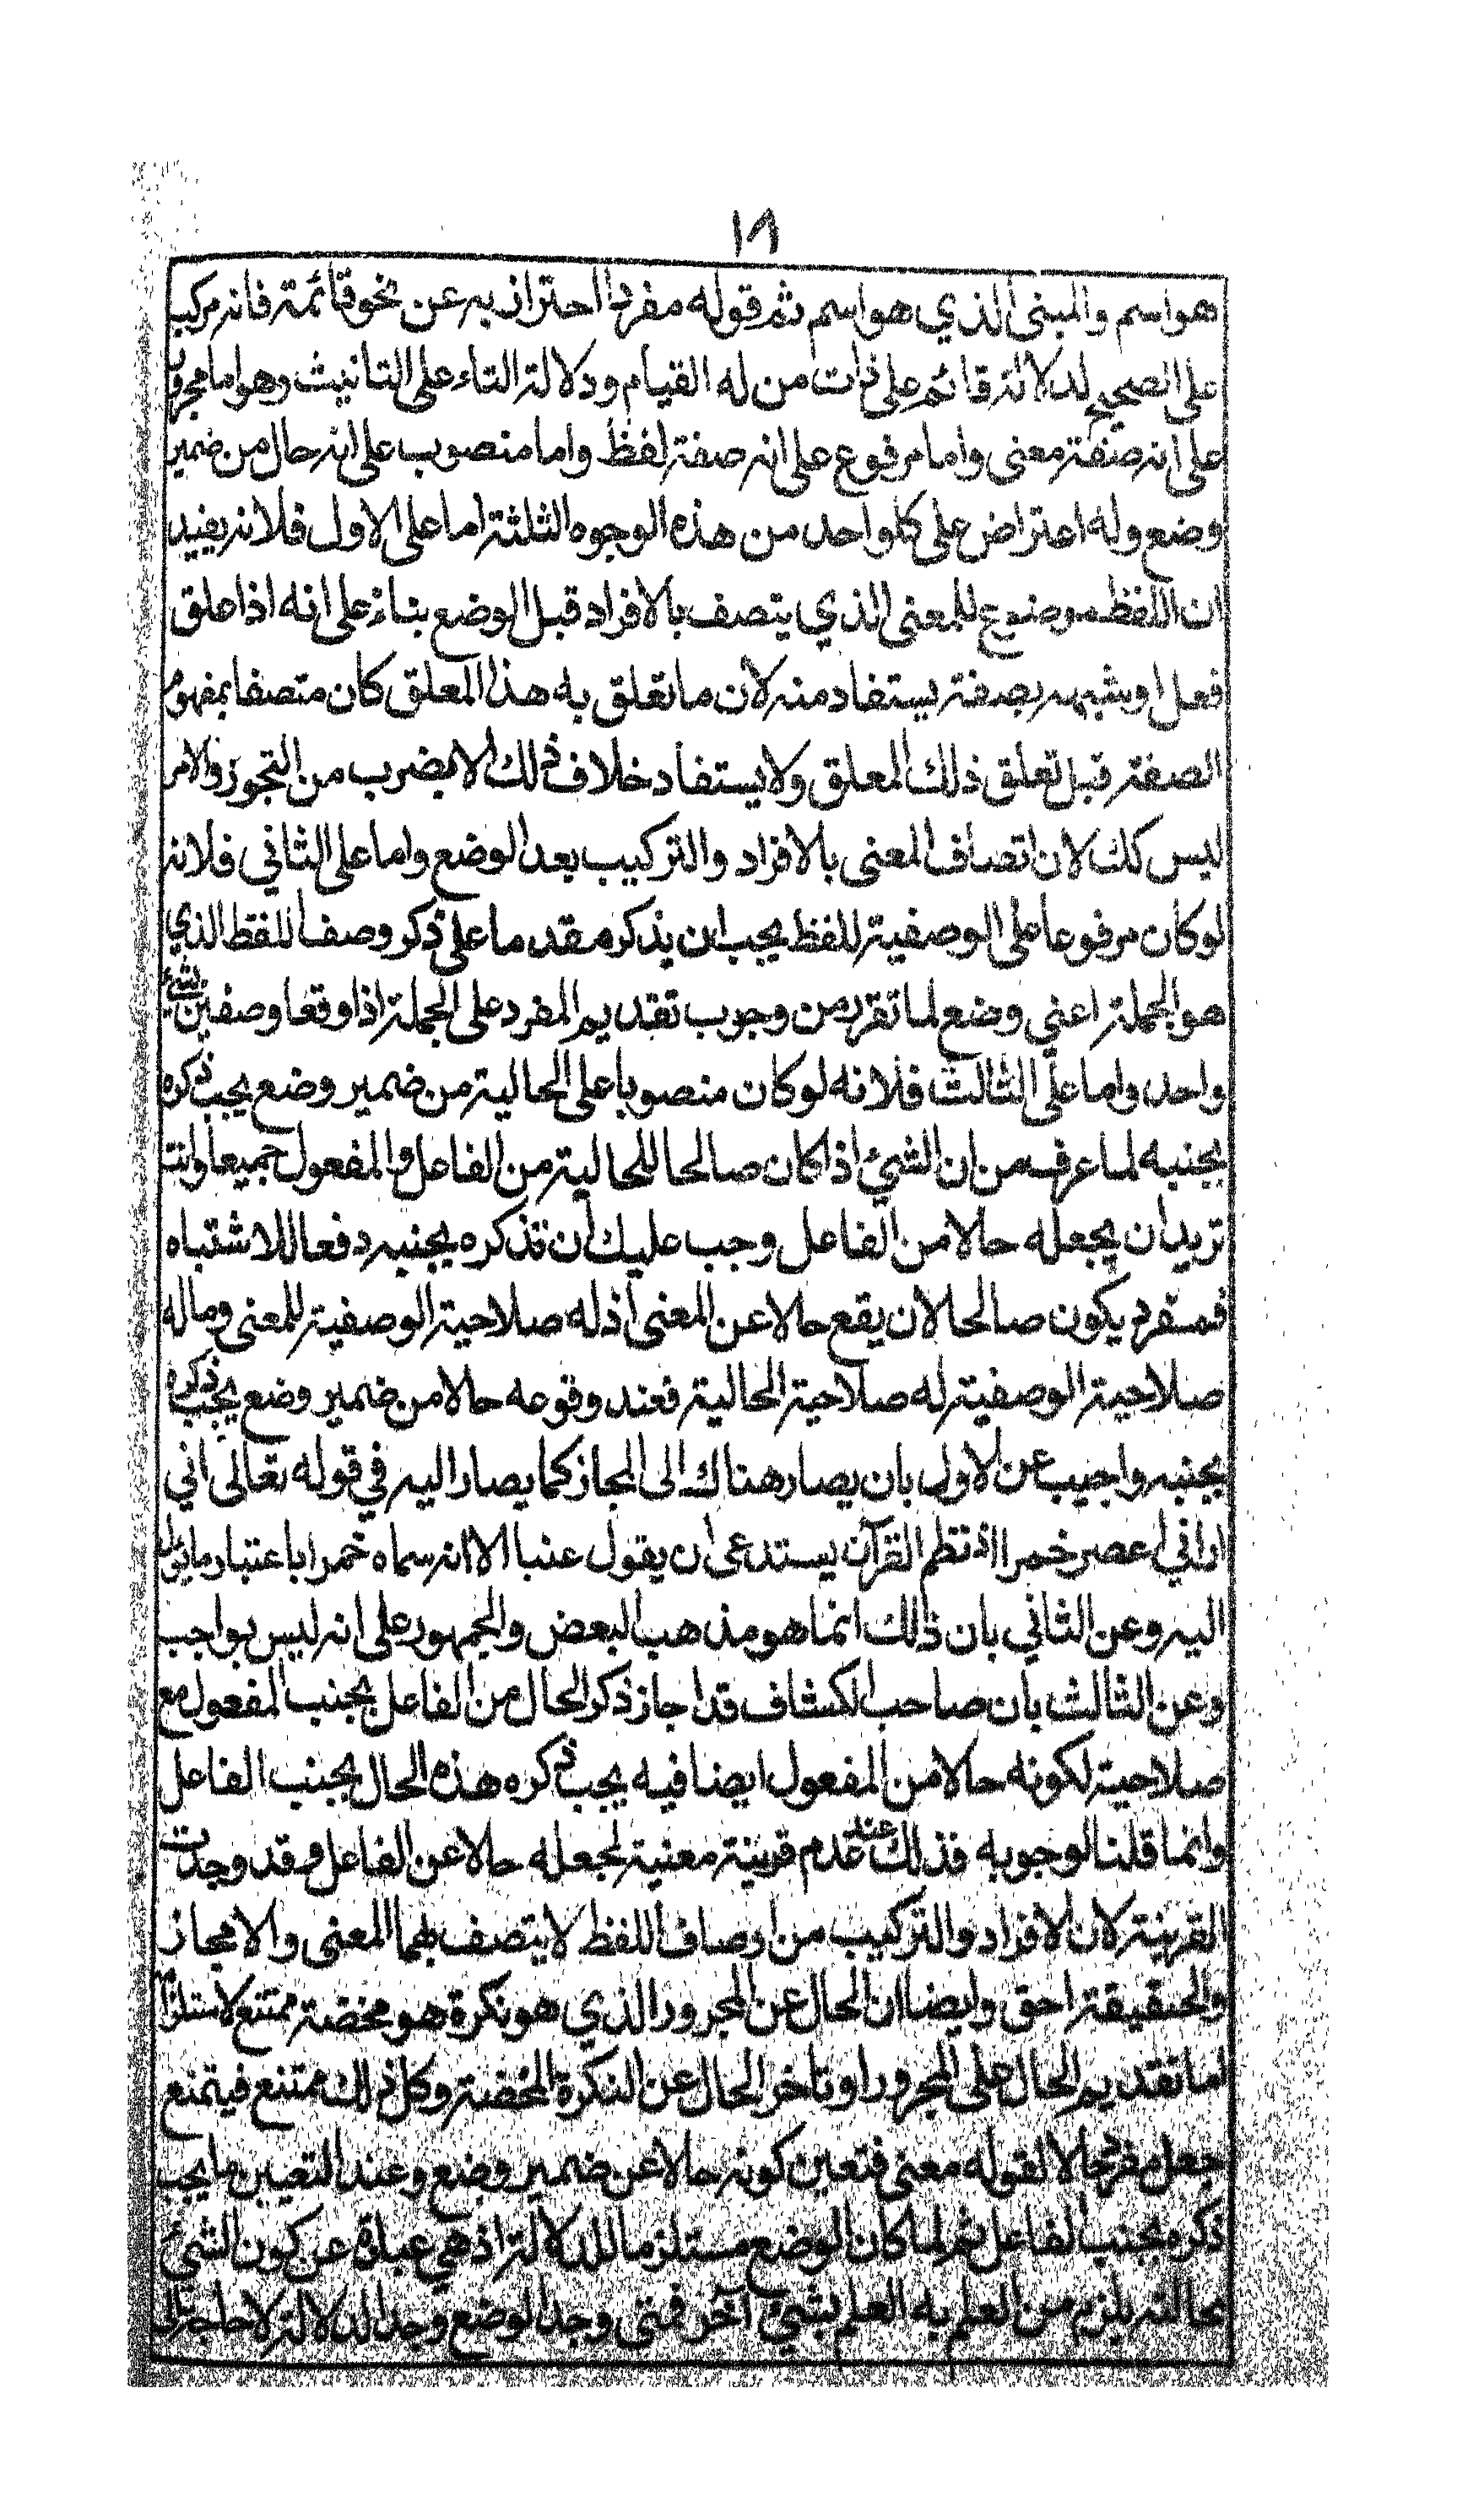 ١٨
هو اسم والمبنى الذي هو اسم ثم قوله مفردا احتراز به عن نحو قائمة فانه مركب
على الصحيح لدلالة قائم على ذات من له القيام ودلالة التاء على التانيث وهو اما مجرور
على انه صفة معنى واما مرفوع على انه صفة لفظ واما منصوب على انه حال من ضمير
وضع وله اعتراض على كلواحد من هذه الوجوه الثلثة اما على الاول فلانه يفيد
ان اللفظ موضوع للمعنى الذي يتصف بالافراد قبل الوضع بناء على انه اذا علق
فعل او شبهه بصفة يستفاد منه لان ما تعلق به هذا المعلق كان متصفا بمفهوم
الصفة قبل تعلق ذلك المعلق ولا يستفاد خلاف ذلك الا بضرب من التجوز والامر
ليس كك لان اتصاف المعنى بالافراد والتركيب بعد الوضع واما على الثاني فلانه
لو كان مرفوعا على الوصفية للفظ يجب ان يذكر مقدما على ذكر وصف اللفظ الذي
هو الجملة اعني وضع لما تقرر من وجوب تقديم المفرد على الجملة اذا وقعا وصفين لشئ
واحد واما على الثالث فلانه لو كان منصوبا على الحالية من ضمير وضع يجب ذكره
بجنبه لما عرف من ان الشئ اذا كان صالحا للحالية من الفاعل والمفعول جميعا وانت
تريد ان يجعله حالا من الفاعل وجب عليك ان تذكره بجنبه دفعا للاشتباه
فمفرد يكون صالحا لان يقع حالا عن المعنى اذ له صلاحية الوصفية للمعنى وما له
صلاحية الوصفية له صلاحية الحالية فعند وقوعه حالا من ضمير وضع يجب ذكره
بجنبه واجيب عن الاول بان يصار هناك الى المجاز كما يصار اليه في قوله تعالى اني
اراني اعصر خمرا اذ نظم القرآن يستدعى ان يقول عنبا الا انه سماه خمرا باعتبار ما يؤل
اليه وعن الثاني بان ذالك انما هو مذهب البعض والجمهور على انه ليس بواجب
وعن الثالث بان صاحب الكشاف قد اجاز ذكر الحال من الفاعل بجنب المفعول مع
صلاحية لكونه حالا من المفعول ايضا فيه يجب ذكره هذه الحال بجنب الفاعل
وانما قلنا لوجوبه فذلك عند عدم قرينة معنية لجعله حالا عن الفاعل وقد وجدت
القرينة لان الافراد والتركيب من اوصاف اللفظ لا يتصف بهما المعنى والا مجاز
والحقيقة احق وايضا ان الحال عن المجرور الذي هو نكرة هو محضة ممتنع لاستلزام
اما تقديم الحال على المجرور او تاخر الحال عن النكرة المحضة وكل ذلك ممتنع فيمتنع
جعل مفرد حالا لقوله معنى فتعين كونه حالا عن ضمير وضع وعند التعيين ما يجب
ذكره بجنب الفاعل ثم لما كان الوضع مستلزما للدلالة اذ هي عبارة عن كون الشئ
بحالة يلزم من العلم به العلم بشئ آخر فمتى وجد الوضع وجد الدلالة لا حاجة الى